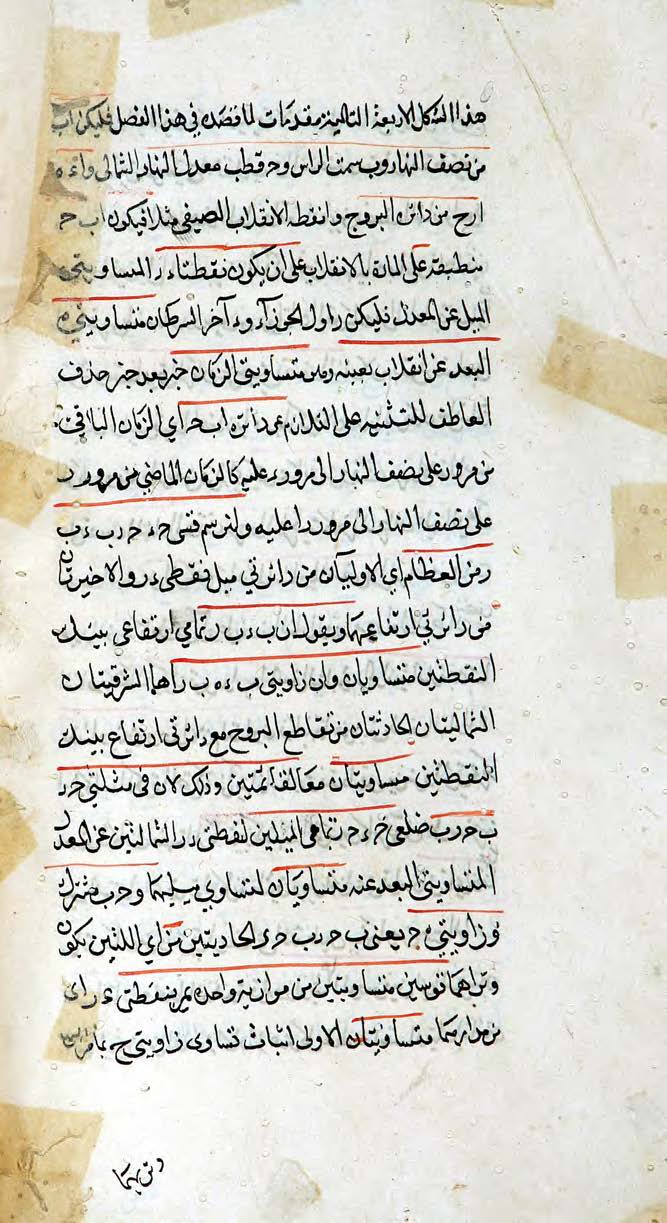 هذا الشكل الاربعة التالية مقدمات لما قصده في هذا الفصل فليكن اب
من نصف النهار وب سمت الراس وح قطب معدل النهار الشمالي واءه
ارح من دائرة البروج وا نقطه الانقلاب الصيفي مثلا فيكون اب ح
منطبقة على المارة بالانقلاب على ان يكون نقطتاء ر المتساويتى
الميل عن المعدل فليكن ر اول الجوزآء وء آخر السرطان متساويتي
البعد عن انقلاب بعينه ومن متساويتى الزمان خبر بعد خبر حذف
العاطف للتنبيه على التلازم عن دائرة اب ح اي الزمان الباقي
من مرور على نصف النهار الى مرور ء عليه كالزمان الماضي من مرور ر
على نصف النهار الى مرور ا عليه ولنرسم قسى حء حر بء ب
ر من العظام اي الاوليان من دائرتي ميل نقطى ءر والاخيرتان
من دائرتي ارتفاعهما ويقول ان بء ب ر تمامي ارتفاعى بينك
النقطتين متساويان وان زاويتى بء ه ب را هما الشرقيتان
الشماليتان الحادثتان من تقاطع البروج مع دائرتى ارتفاع بينك
النقطتين متساويتان معا لقائمتين وذلك لان فى مثلثي حء
ب حرب ضلعى حء حر تمامى الميلين لنقطتى ءر الشمالتين عن المعدل
المتساويتى البعد عنه متساويان لتساوي ميليهما وحب مشترك
وزاويتي ح يعنى ب حء ب حر الحاديتين من اي اللتين يكون
وتراهما قوسين متساويتين من موازية واحدة يمر بنقطتى ء ر اى
من مداريهما متساويتان الاولى اثبات تساوى زاويتي ح بما مر
وتريهما